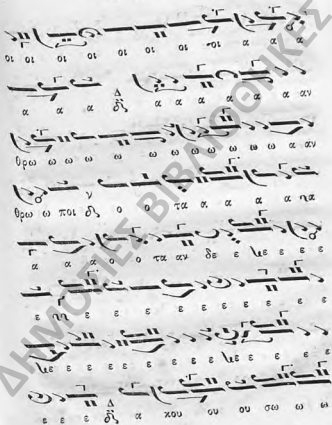 οι οι οι οι οι οι οι οι α α α
α α α Δ δι α α α α α α αν
θρω ω ω ω ω ω ω ω ω ω ω α αν
θρω ω ποι δι ο ο τα α α α α
α α α ο ο τα αν δε ε ε ε ε ε
ε ε ε ε ε ε ε ε ε ε ε
ε ε ε ε ε ε ε ε ε ε ε ε
ε ε ε Δ δι α κου ου ου σω ω ω
ΔΗΜΟΣΙΕΣ ΒΙΒΛΙΟΘΗΚΕΣ